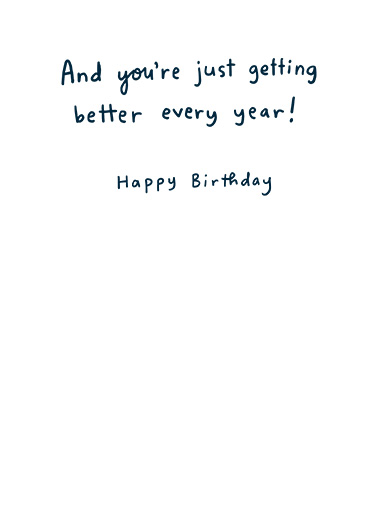 And you're just getting
better every year!
Happy Birthday